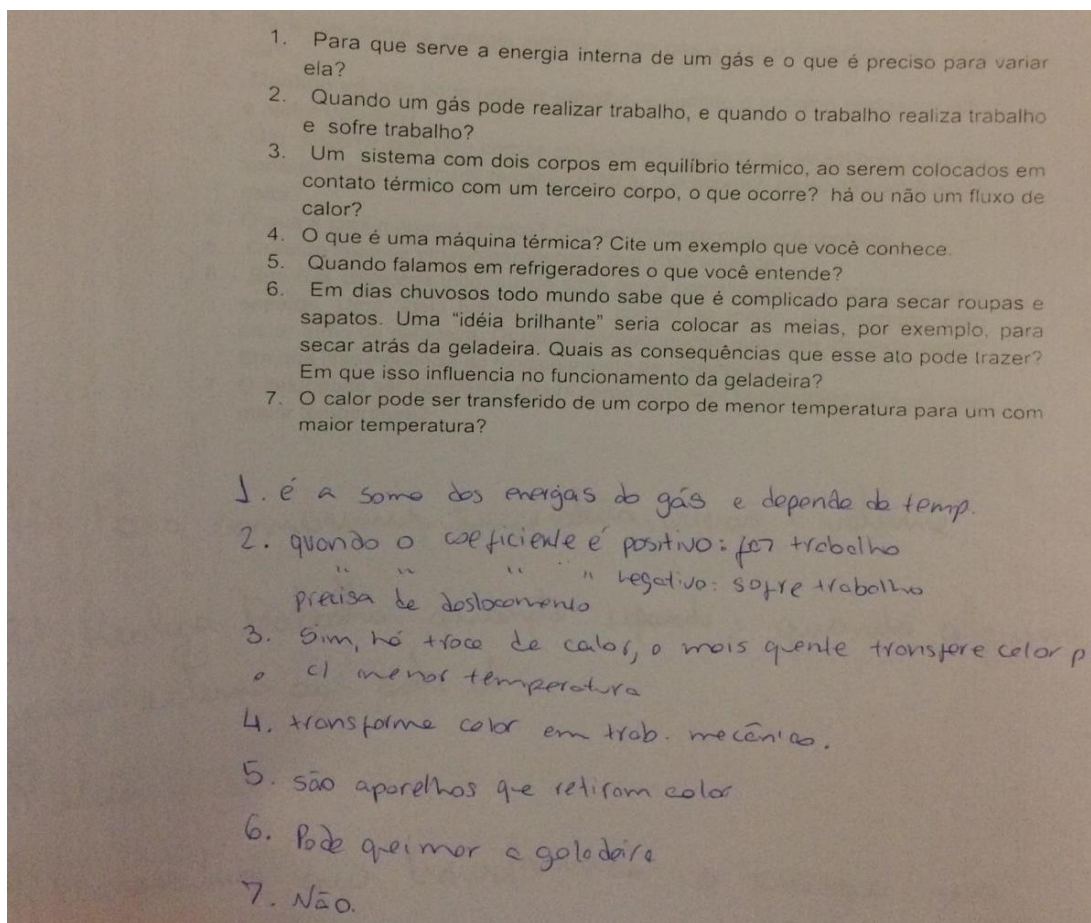 1. Para que serve a energia interna de um gás e o que é preciso para variar
ela?
2. Quando um gás pode realizar trabalho, e quando o trabalho realiza trabalho
e sofre trabalho?
3. Um sistema com dois corpos em equilíbrio térmico, ao serem colocados em
contato térmico com um terceiro corpo, o que ocorre? há ou não um fluxo de
calor?
4. O que é uma máquina térmica? Cite um exemplo que você conhece.
5. Quando falamos em refrigeradores o que você entende?
6. Em dias chuvosos todo mundo sabe que é complicado para secar roupas e
sapatos. Uma “idéia brilhante” seria colocar as meias, por exemplo, para
secar atrás da geladeira. Quais as consequências que esse ato pode trazer?
Em que isso influencia no funcionamento da geladeira?
7. O calor pode ser transferido de um corpo de menor temperatura para um com
maior temperatura?
1. é a soma das energias do gás e depende da temp.
2. quando o coeficiente é positivo: faz trabalho
" " " " negativo: sofre trabalho
precisa de deslocamento
3. Sim, há troca de calor, o mais quente transfere calor p
o c/ menor temperatura
4. transforma calor em trab. mecânico.
5. são aparelhos que retiram calor
6. Pode queimar a geladeira
7. Não.